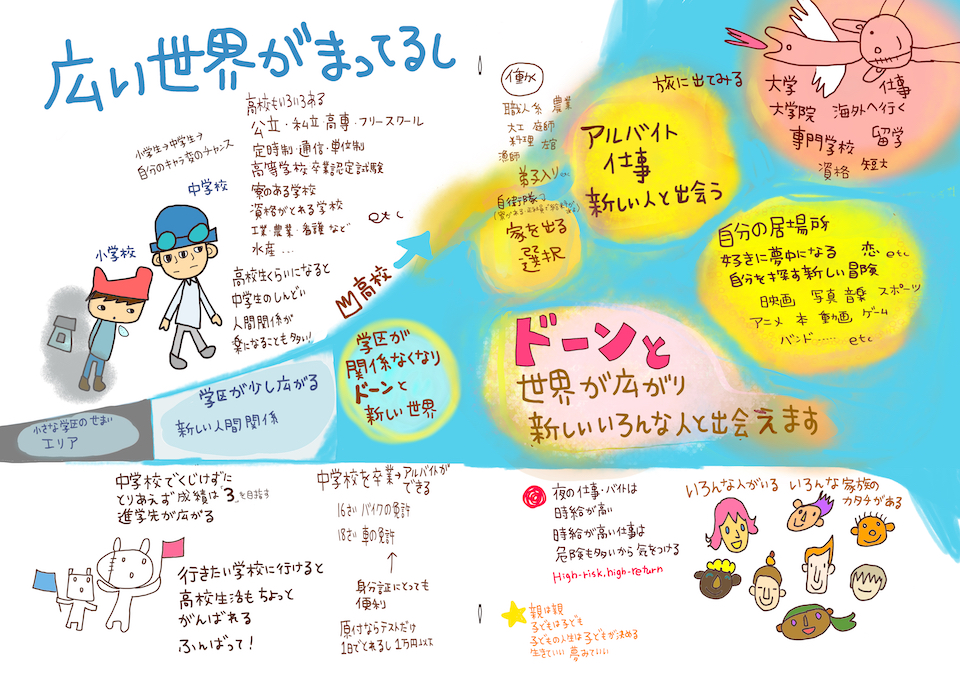 広い世界がまってるし
小学生→中学生→
自分のキャラ変のチャンス
中学校
小学校
高校もいろいろある
公立・私立 高専・フリースクール
定時制・通信・単位制
高等学校卒業認定試験
寮のある学校
資格がとれる学校
工業・農業・看護 など
水産 …
etc
高校生くらいになると
中学生のしんどい
人間関係が
楽になることも多い!
高校
働く
職人系 農業
大工 庭師
料理 左官
漁師
弟子入り etc
自衛隊
家を出る
選択
旅に出てみる
アルバイト
仕事
新しい人と出会う
大学 仕事
大学院 海外へ行く
専門学校 留学
資格 短大
自分の居場所
好きに夢中になる 恋 etc
自分を探す新しい冒険
映画 写真 音楽 スポーツ
アニメ 本 動画 ゲーム
バンド…… etc
小さな学区のせまい
エリア
学区が少し広がる
新しい人間関係
学区が
関係なくなり
ドーンと
新しい世界
ドーンと
世界が広がり
新しいいろんな人と出会えます
中学校でくじけずに
とりあえず成績は「3」を目指す
進学先が広がる
行きたい学校に行けると
高校生活もちょっと
がんばれる
ふんばって!
中学校を卒業→アルバイトが
できる
16さい バイクの免許
18さい 車の免許
↑
身分証にとっても
便利
原付ならテストだけ
1日でとれるし 1万円以下
夜の仕事・バイトは
時給が高い
時給が高い仕事は
危険も多いから気をつける
High-risk, high-return
親は親
子どもは子ども
子どもの人生は子どもが決める
生きていい 夢みていい
いろんな人がいる
いろんな家族の
カタチがある